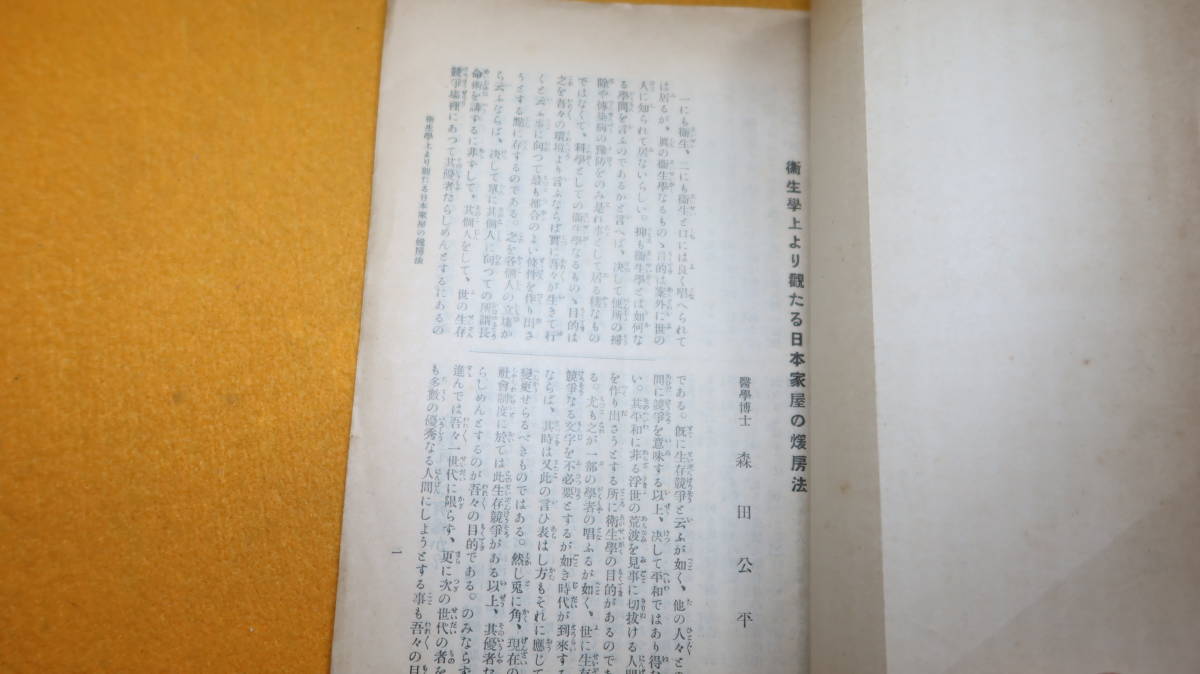 衞生學上より觀たる日本家屋の煖房法
醫學博士 森田公平
一にも衞生、二にも衞生と口には良く唱へられて
は居るが、眞の衞生學なるものゝ目的は案外に世の
人に知られて居ないらしい。抑も衞生學とは如何な
る學問を言ふのであるかと言へば、決して便所の掃
除や傳染病の豫防をのみ是れ事として居る樣なもの
ではなくて、科學としての衞生學なるものゝ目的は
之を吾々の環境より言ふならば實に吾々が生きて行
くと云ふ事に向つて最も都合のよい條件を作り出さ
うとする點に存するのである。之を各個人の立場か
ら云ふならば、決して單に其個人に向つての所謂長
命術を講ずるに非ずして、其個人をして、世の生存
競爭場裡にあつて其優者たらしめんとするにあるの
である。旣に生存競爭と云ふが如く、他の人々と
間に競爭を意味する以上、決して平和ではあり得
い。其平和に非る浮世の荒波を見事に切拔ける人間
を作り出さうとする所に衞生學の目的があるので
る。尤も之が一部の學者の唱ふるが如く、世に生存
競爭なる文字を不必要とするが如き時代が到來する
ならば、其時は又此の言ひ表はし方もそれに應じて
變更せらるべきものではある。然し兎に角、現在の
社會制度に於ては此生存競爭がある以上、其優者た
らしめんとするのが吾々の目的である。のみならず
進んでは吾々一世代に限らず、更に次の世代の者を
も多數の優秀なる人間にしようとする事も吾々の目
衞生學上より觀たる日本家屋の煖房法
一